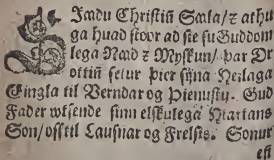 SJmdu Christiñ Sæla/ z athu
ga huad stoor ad sie su Guddom
lega Naad z Myskun/ þar Dr
ottiñ setur þier sijna Heilaga
Eingla til Verndar og Þienustu. Gud
Fader wtsende sinn elskulega Hiartans
Son/ oss til Lausnar og Frelsis. Sonur
eñ